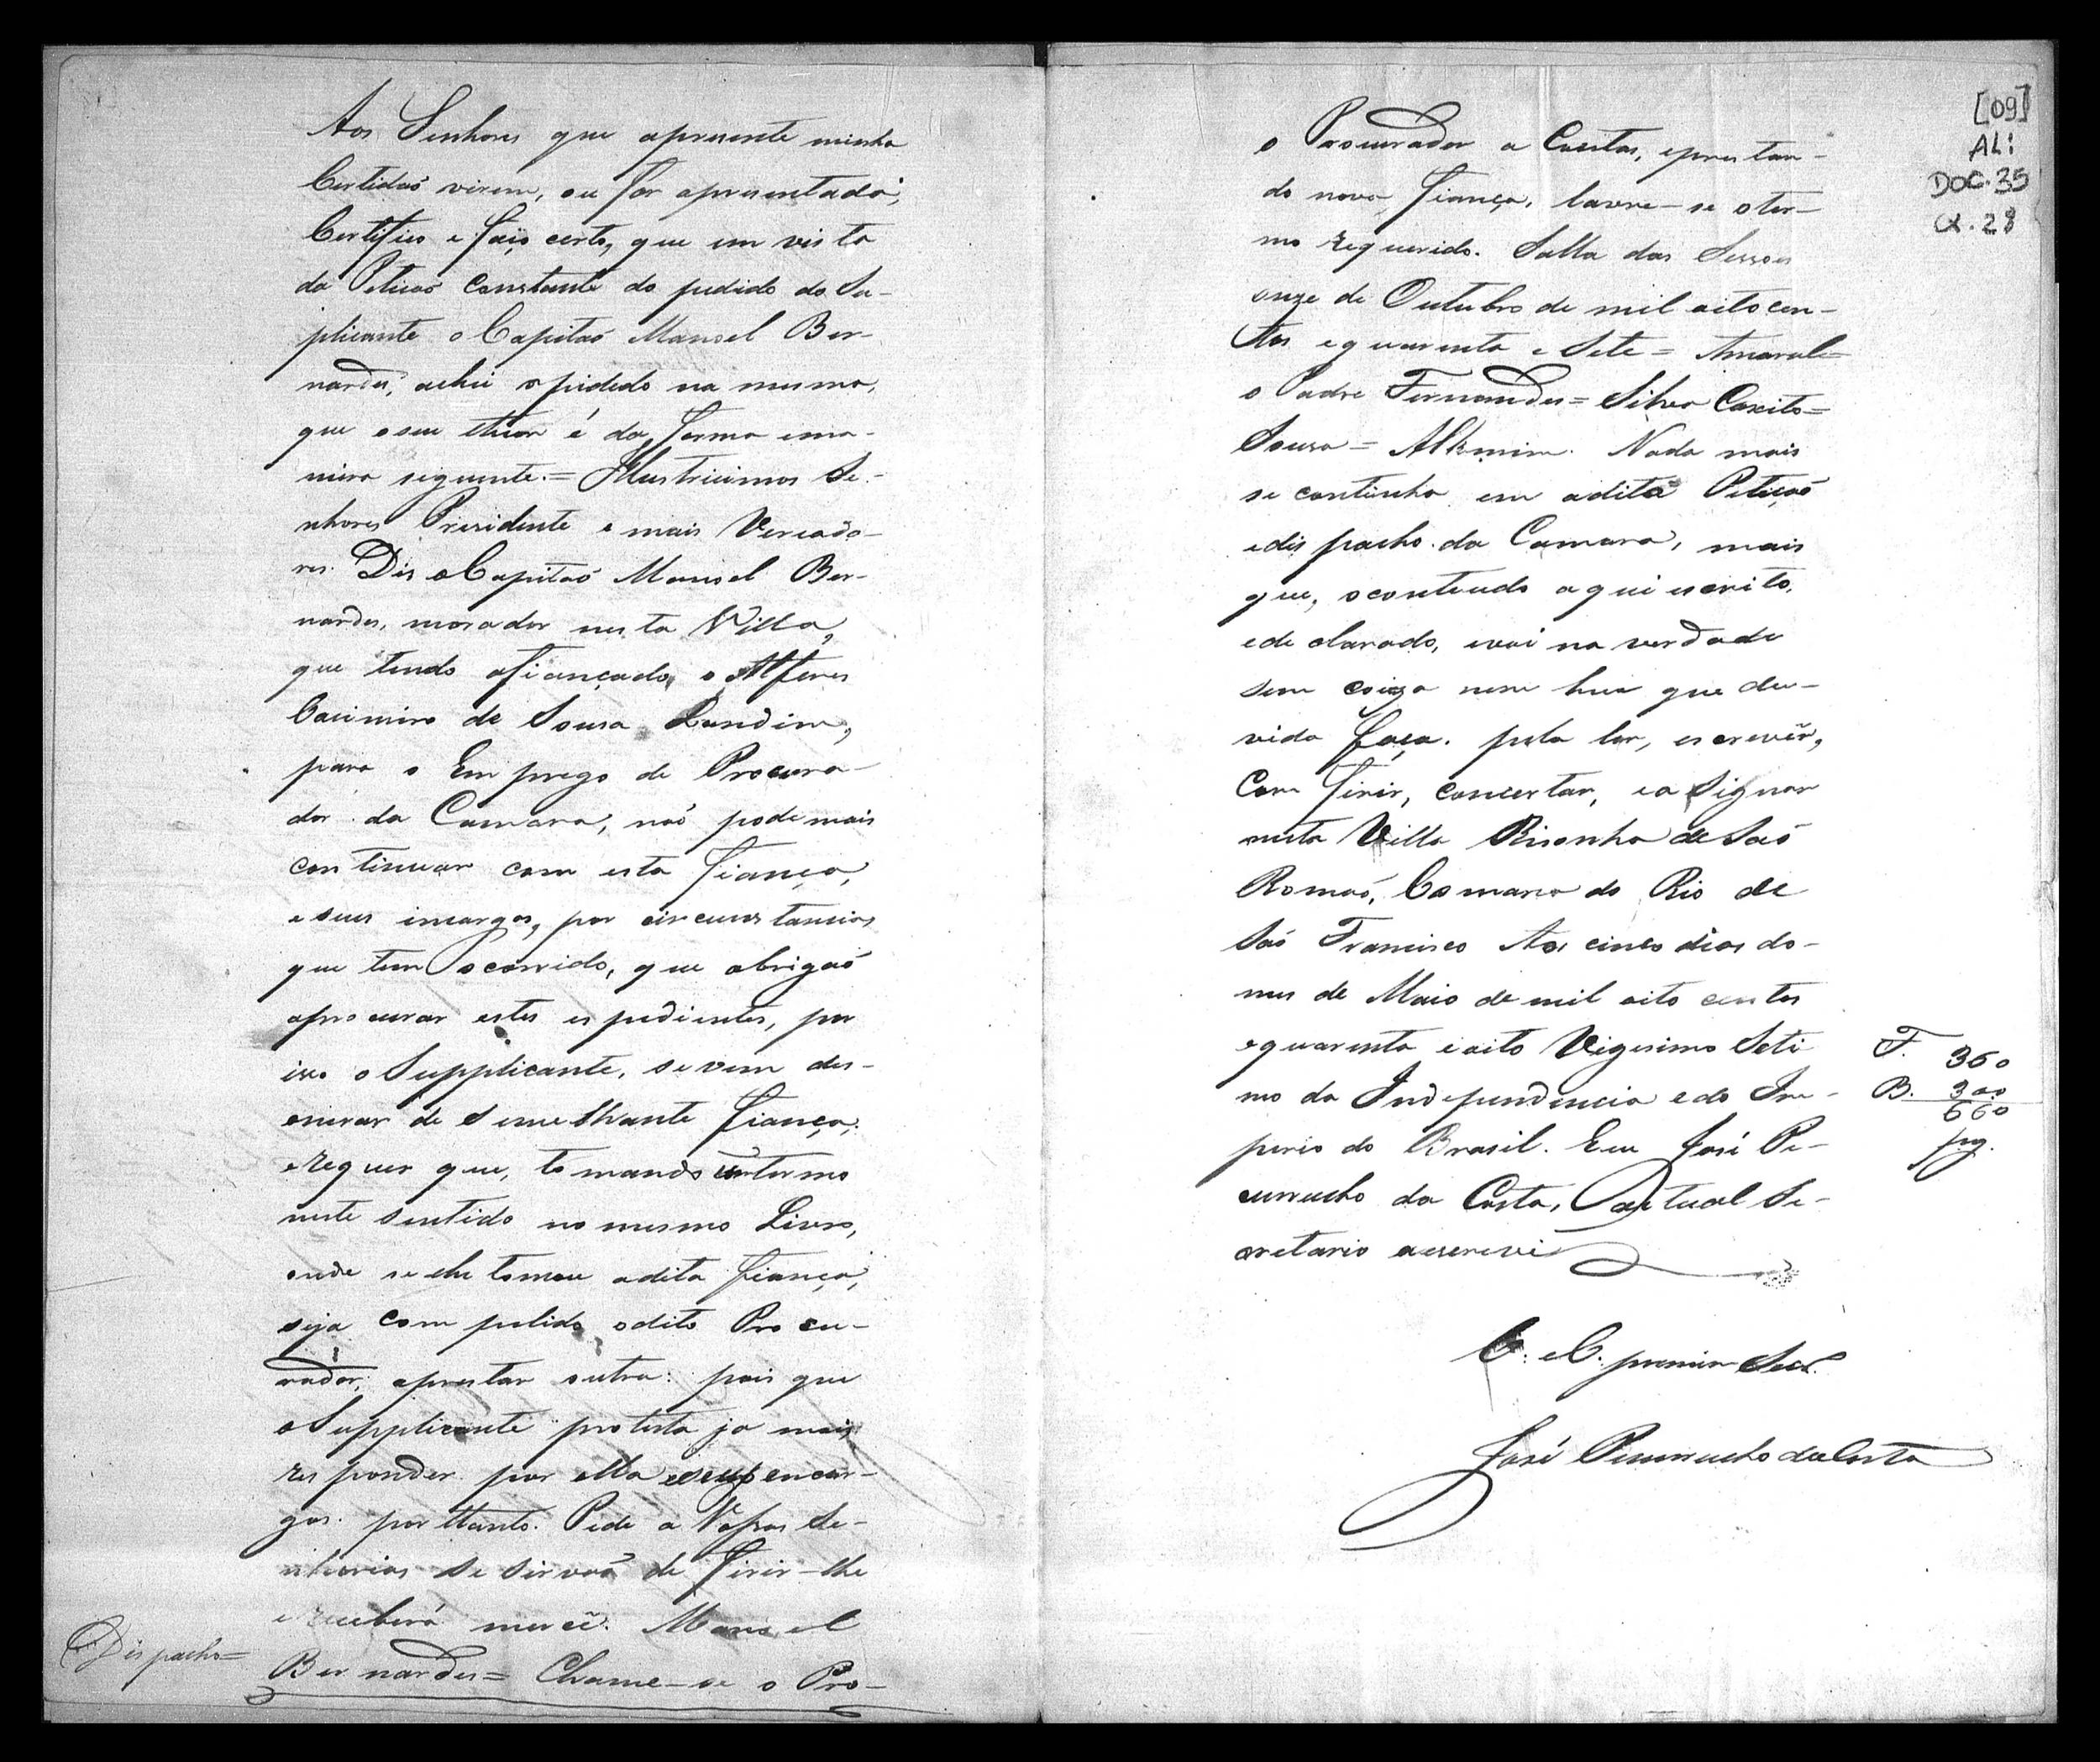 Aos Senhores que apresente minha
Certidaó virem, ou for apresentada,
Certifico e faço certo, que em vista
da Peticaó Constante do pedido do Su-
plicante o Capitaó Manoel Ber-
nardes, achei o pedido na mesma,
que o seu theor é da forma ema-
neira seguinte.= Illustricimos Se-
nhores Presidente e mais Vereado-
res. Dis o Capitaó Manoel Ber-
nardes, morador nesta Villa,
que tendo afiançado o Alferes
Casimiro de Sousa Landim,
para o Em prego de Procura-
dor da Camara, naó pode mais
con tinuar com esta fiança,
e seus incargos, por circuns tancias
que tem ocorrido, que obrigaó
aprocurar estes es pedientes, por
iso o Supplicante, se vem des-
onerar de seme lhante fiança,
e requer que, to mando um termo
neste sentido no mesmo Livro,
onde se lhe tomou adita fiança,
seja com pelido o dito Pro cu-
rador, aprestar outra: pois que
o Supplicante protesta ja mais
res ponder por ella e seus encar-
gos. por ttanto. Pede a Vossas Se-
nhorias se sirvaó de firir-lhe
e receberá mercê. Manoel
Dispacho=
Ber nardes= Chame-se o Pro-
o Procurador a Contas, eprestan-
do nova fiança, lavre-se oter-
mo requerido. Salla das Sessoes
onze de Outubro de mil oitocen-
tos e quarenta e Sete= Amaral=
o Padre Fernandes= Silva Caxito=
Sousa= Alkmim. Nada mais
se continha em adita Petiçaó
edis pacho da Camara, mais
que, ocontendo aqui escrito,
ede clarado, evai na verdade
sem coiza nem hua que du-
vida faça. pela ler, escrever,
Com firir, concertar, ea Signar
nesta Villa Risonha de Saó
Romaó, Comarca do Rio de
Saó Francisco Aos cinco dias do-
mes de Maio de mil oito centos
e quarenta e oito Vigesimo Seti
mo da Independencia e do Im-
perio do Brasil. Eu José Pe-
currucho da Costa, Actual Se-
cretario a escrevi
C. e C. por mim Secr.
José Pecurrucho da Costa
F. 360
B. 300
660
pg.
[09]
AL:
DOC. 35
CX. 28